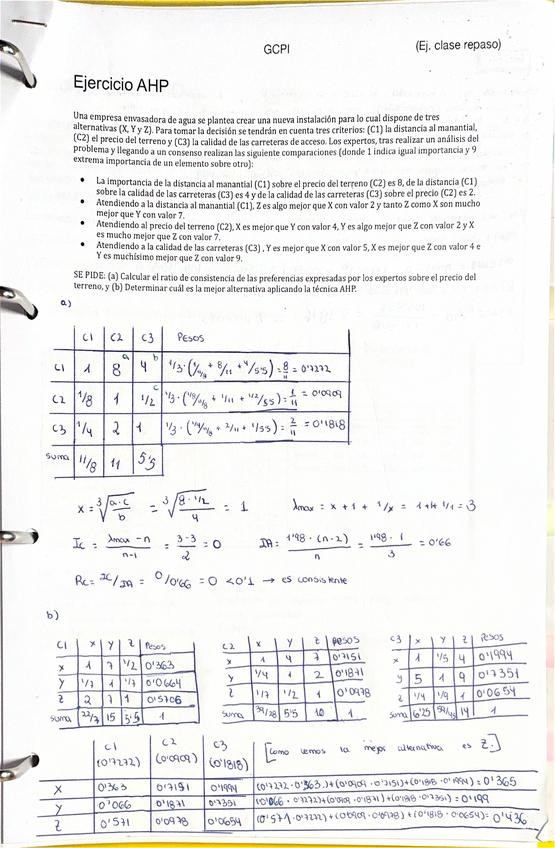 GCPI
(Ej. clase repaso)
Ejercicio AHP
Una empresa envasadora de agua se plantea crear una nueva instalación para lo cual dispone de tres
alternativas (X, Y y Z). Para tomar la decisión se tendrán en cuenta tres criterios: (C1) la distancia al manantial,
(C2) el precio del terreno y (C3) la calidad de las carreteras de acceso. Los expertos, tras realizar un análisis del
problema y llegando a un consenso realizan las siguiente comparaciones (donde 1 indica igual importancia y 9
extrema importancia de un elemento sobre otro):
• La importancia de la distancia al manantial (C1) sobre el precio del terreno (C2) es 8, de la distancia (C1)
sobre la calidad de las carreteras (C3) es 4 y de la calidad de las carreteras (C3) sobre el precio (C2) es 2.
• Atendiendo a la distancia al manantial (C1), Z es algo mejor que X con valor 2 y tanto Z como X son mucho
mejor que Y con valor 7.
• Atendiendo al precio del terreno (C2), X es mejor que Y con valor 4, Y es algo mejor que Z con valor 2 y X
es mucho mejor que Z con valor 7.
• Atendiendo a la calidad de las carreteras (C3) , Y es mejor que X con valor 5, X es mejor que Z con valor 4 e
Y es muchísimo mejor que Z con valor 9.
SE PIDE: (a) Calcular el ratio de consistencia de las preferencias expresadas por los expertos sobre el precio del
terreno, y (b) Determinar cuál es la mejor alternativa aplicando la técnica AHP.
a)
C1 C2 C3 PESOS
C1 1 8 a 4 b 1/3·(1/11/8 + 8/11 + 4/5'5) = 8/11 = 0'7272
C2 1/8 1 1/2 c 1/3·(1/8/11/8 + 1/11 + 1/2/5'5) = 1/11 = 0'0909
C3 1/4 2 1 1/3·(1/4/11/8 + 2/11 + 1/5'5) = 2/11 = 0'1818
suma 11/8 11 5'5
x = ∛(a·c/b) = ∛(8·1/2/4) = 1 λmax = x + 1 + 1/x = 1+1+1/1 = 3
Ic = λmax - n/n-1 = 3-3/2 = 0 IA = 1'98·(n-2)/n = 1'98·1/3 = 0'66
Rc = IC/IA = 0/0'66 = 0 < 0'1 → es consistente
b)
C1 X Y Z Pesos
X 1 7 1/2 0'363
Y 1/7 1 1/7 0'0664
Z 2 7 1 0'5706
suma 22/7 15 5'5 1
C2 X Y Z PESOS
X 1 4 7 0'7151
Y 1/4 1 2 0'1871
Z 1/7 1/2 1 0'0978
suma 39/28 5'5 10 1
C3 X Y Z PESOS
X 1 1/5 4 0'1994
Y 5 1 9 0'7351
Z 1/4 1/9 1 0'0654
suma 6'25 59/45 14 1
C1 (0'7272) C2 (0'0909) C3 (0'1818) [Como vemos la mejor alternativa es Z.]
X 0'363 0'7151 0'1994 (0'7272·0'363)+(0'0909·0'7151)+(0'1818·0'1994) = 0'365
Y 0'066 0'1871 0'7351 (0'066·0'7272)+(0'0909·0'1871)+(0'1818·0'7351) = 0'199
Z 0'571 0'0978 0'0654 (0'571·0'7272)+(0'0909·0'0978)+(0'1818·0'0654) = 0'436